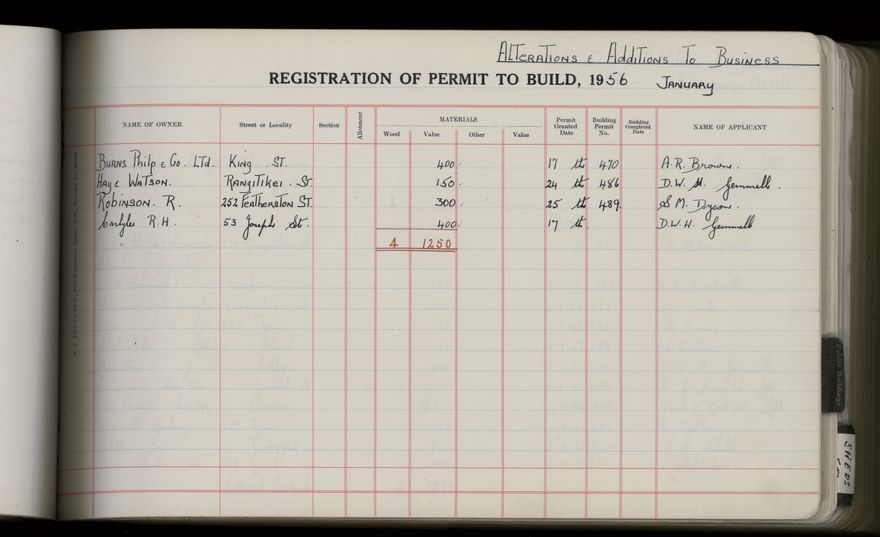 Alterations & Additions To Business
REGISTRATION OF PERMIT TO BUILD, 1956 January
NAME OF OWNER Street or Locality Section Allotment MATERIALS Permit Granted Date Building Permit No. Building Completed Date NAME OF APPLICANT
Wood Value Other Value
Burns Philp & Co. Ltd. King St. 400 17 th 470 A.R. Browne.
Hay & Watson. Rangitikei St. 150 24 th 486 D.W.H. Gemmell.
Robinson. R. 252 Featherston St. 300 25 th 489 S M. Dyson.
Carlyle R.H. 53 Joseph St. 400 17 th. D.W.H. Gemmell
4 1250
SHEDS